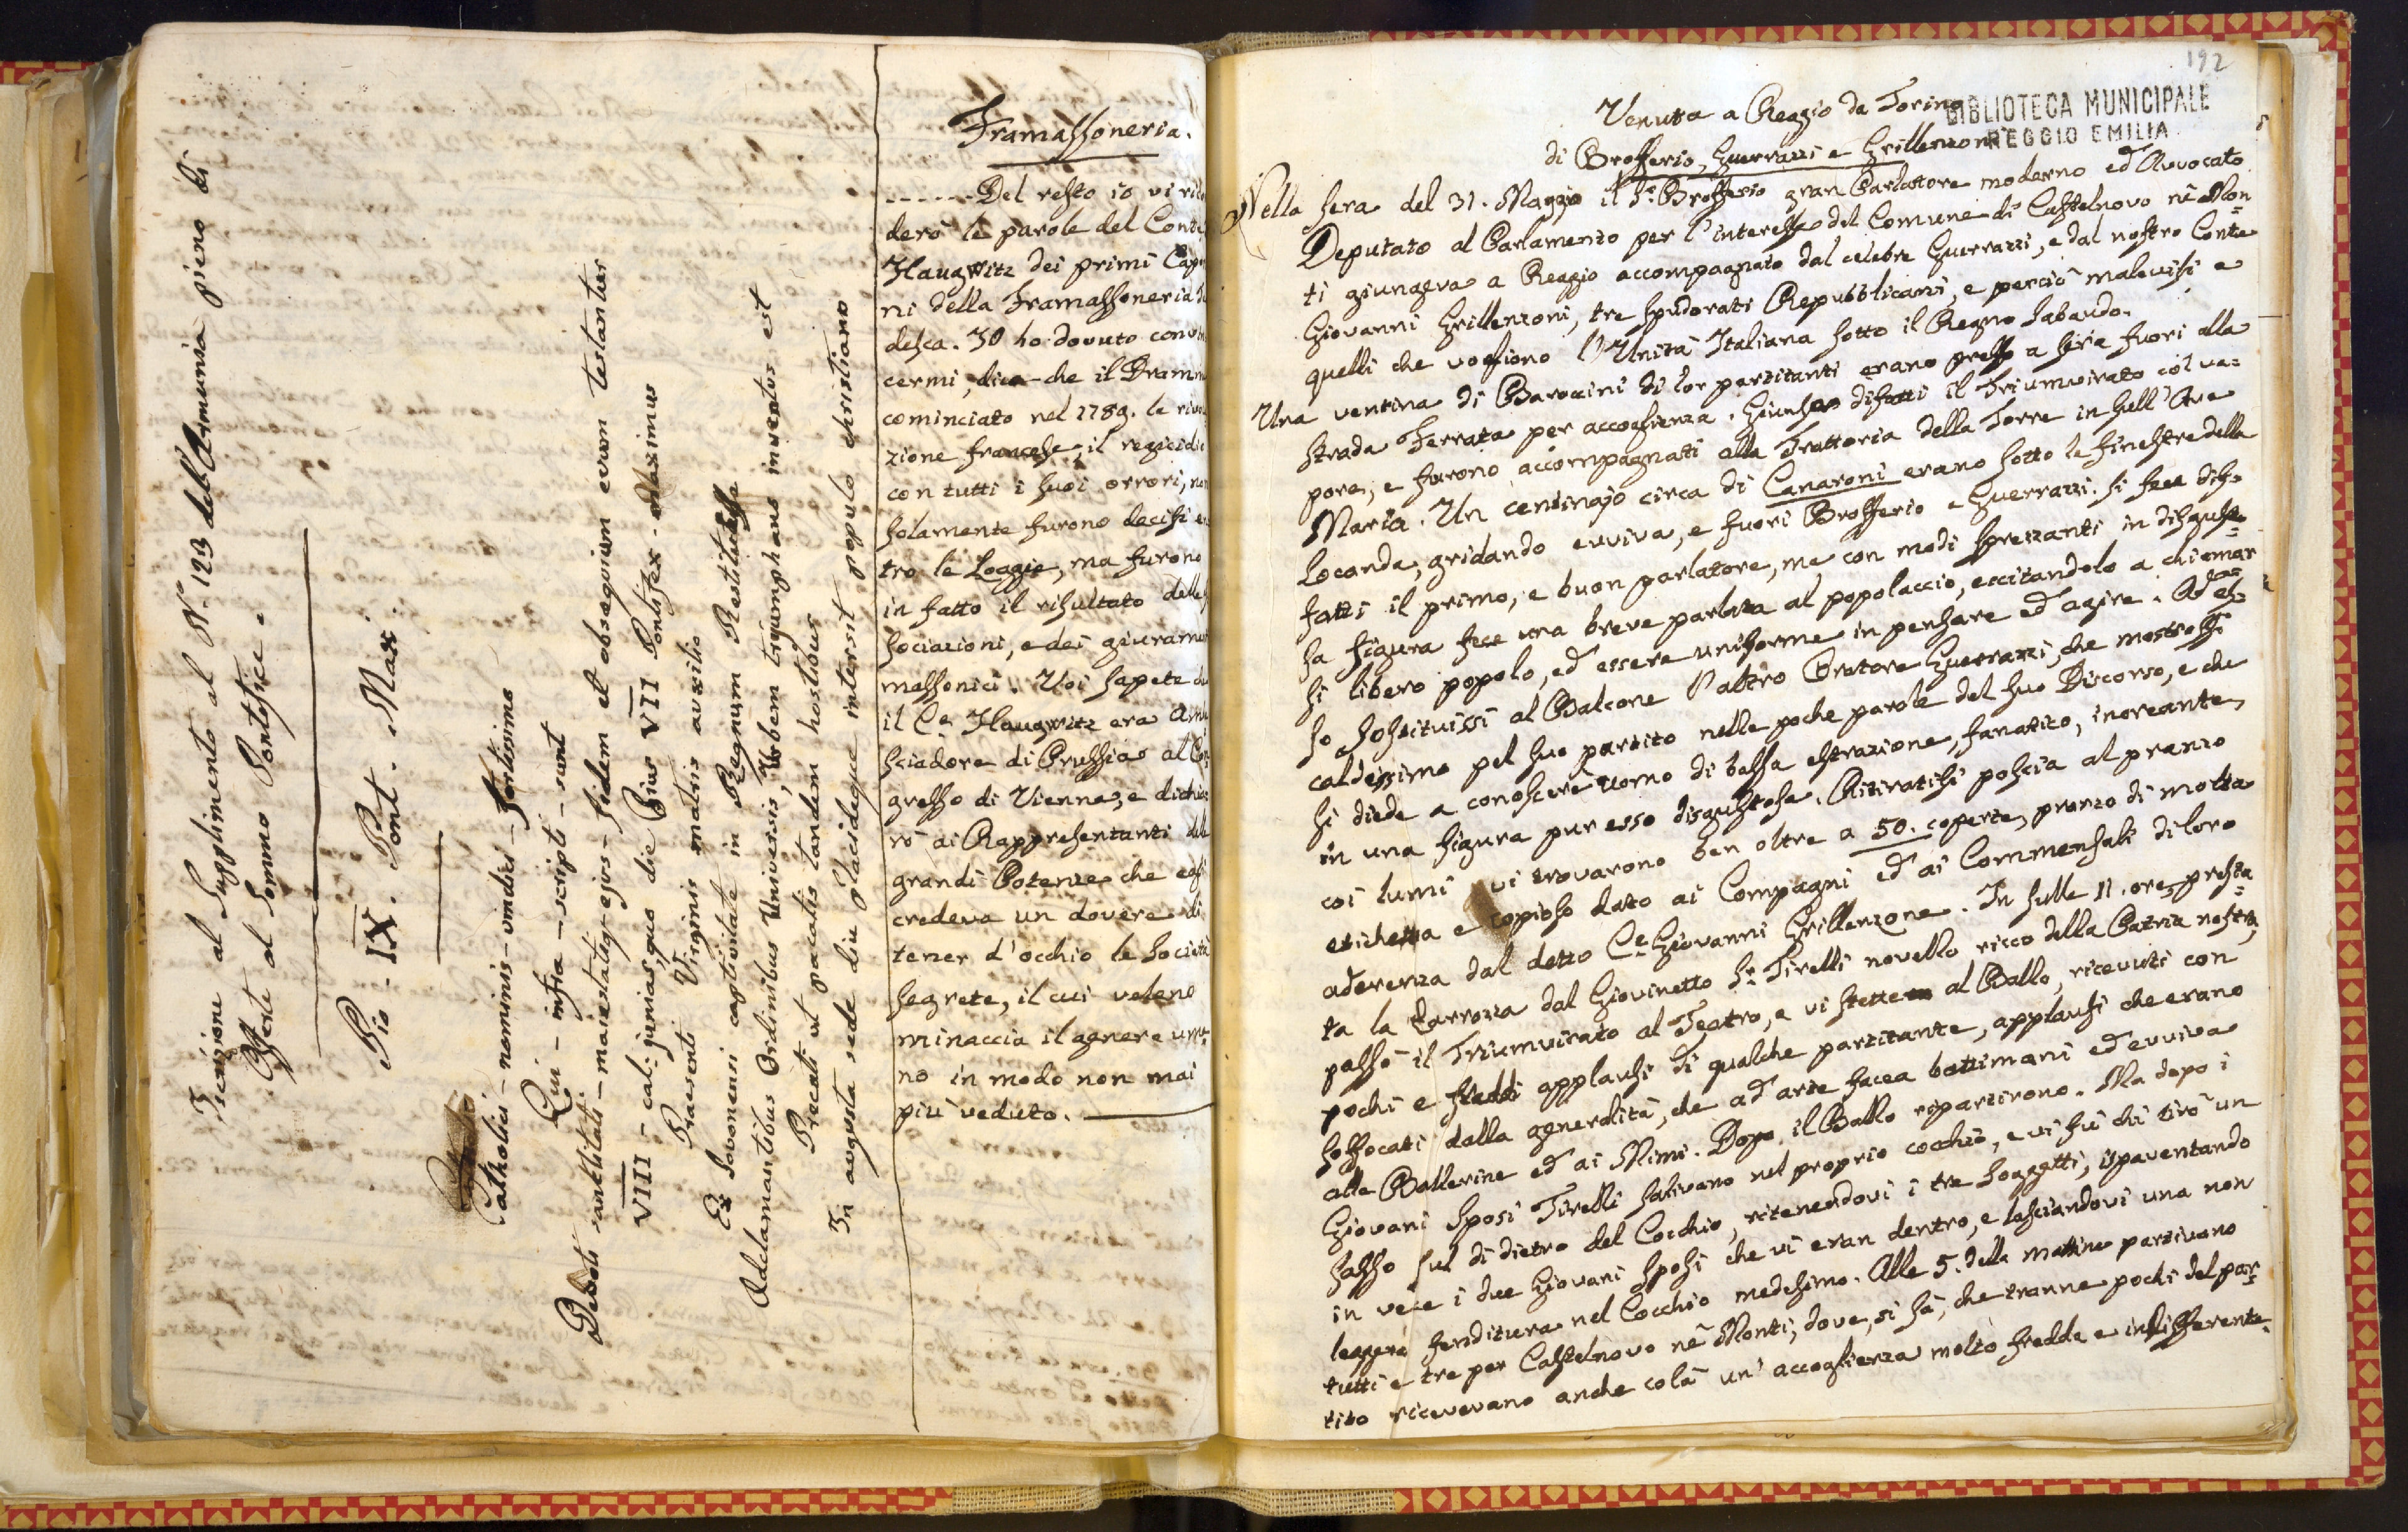 Iscrizione al Supplimento al N.º 123 dell'Armunia pieno di
Offerte al Sommo Pontefice.
Pio - IX. Pont. Max.
Catholici - nominis - vindici - fortissimo
Qui - infra - scripti - sunt
Devoti sanctitati - maiestatiq - ejus - fidem et obsequium eum testantur
VIII - cal: junias, quo die Pius VII Pontifex - Maximus
Praesenti Virginis matris auxilio
Ex Sovonensi captivitate in Regnum Restitutus
Adclamantibus Ordinibus Universis, Urbem triumphans invectus est
Precati ut pacatis tandem hostibus
In augusta sede diu placideque intersit populo christiano
Framassoneria.
------Del resto io vi
derò le parole del Conte
Haugwitz dei primi
ni della Framassoneria
desca. Io ho dovuto
cermi, dice - che il Dramma
cominciato nel 1789. la
zione francese, il regicidio
con tutti i suoi orrori, non
solamente furono decisi
tro le Loggie, ma furono
in fatto il risultato delle
sociazioni, e dei
massonici. Voi sapete che
il C.e Haugwitz era
sciadore di Prussia al Con
gresso di Vienna, e
rò ai Rappresentanti delle
grandi Potenze che egli
credeva un dovere di
tener d'occhio le Società
segrete, il cui veleno
minaccia il genere uma
no in modo non mai
più veduto.
192
BIBLIOTECA MUNICIPALE
REGGIO EMILIA
Venuta a Reggio da Torino
di Brofferio, Guerrazzi e Grillenzoni
Nella sera del 31. Maggio il S.r Brofferio gran Parlatore moderno ed Avvocato
Deputato al Parlamento per l'interesse del Comune di Castelnovo nè Mon=
ti giungeva a Reggio accompagnato dal celebre Guerrazzi, e dal nostro Conte
Giovanni Grillenzoni, tre spudorati Repubblicani, e perciò malevisi a
quelli che vogliono l'Unità Italiana sotto il Regno Sabaudo.
Una ventina di Baroccini di lor partitanti erano presso a sera fuori alla
strada Ferrata per accoglienza. Giunse difatti il Triumvirato col va=
pore, e furono accompagnati alla Trattoria della Torre in sull'Ave
Maria. Un centinajo circa di Canaroni erano sotto le finestre della
Locanda, gridando evviva, e fuori Brofferio e Guerrazzi. Si fece dif=
fatti il primo, e buon parlatore, ma con modi sprezzanti, in disgusto=
sa figura fece una breve parlata al popolaccio, eccitandolo a chiamar
si libero popolo, ed essere uniforme in pensare ed agire. Ad es=
so sostituissi al Balcone l'altro Oratore Guerrazzi, che mostrossi
caldissimo pel suo partito nelle poche parole del suo Discorso, e che
si diede a conoscere uomo di bassa estrazione, fanatico, increante,
in una figura pur esso disgustosa. Ritiratisi poscia al pranzo
coi lumi vi trovarono ben oltre a 50. coperte, pranzo di molta
etichetta e copioso dato ai Compagni ed ai Commensali di loro
aderenza dal detto C.e Giovanni Grillenzone. In sulle 11. ore, presta=
ta la Carrozza dal Giovinetto S.r Tirelli novello ricco della Patria nostra,
passò il Triumvirato al Teatro, e vi stette al Ballo, ricevuti con
pochi e freddi applausi di qualche partitante, applausi che erano
soffocati dalla generalità, che ad arte facea battimani ed evviva
alle Ballerine ed ai Mimi. Dopo il Ballo ripartirono. Ma dopo i
Giovani Sposi Tirelli salivano nel proprio cocchio, e vi fù chi tirò un
sasso sul di dietro del Cocchio, ritenendovi i tre Soggetti, ispaventando
in vece i due Giovani Sposi che vi eran dentro, e lasciandovi una non
leggera fenditura nel Cocchio medesimo. Alle 5. della mattina partivano
tutti e tre per Castelnovo nè Monti, dove, si sà, che tranne pochi del par=
tito ricevevano anche colà un' accoglienza molto fredda e indifferente.